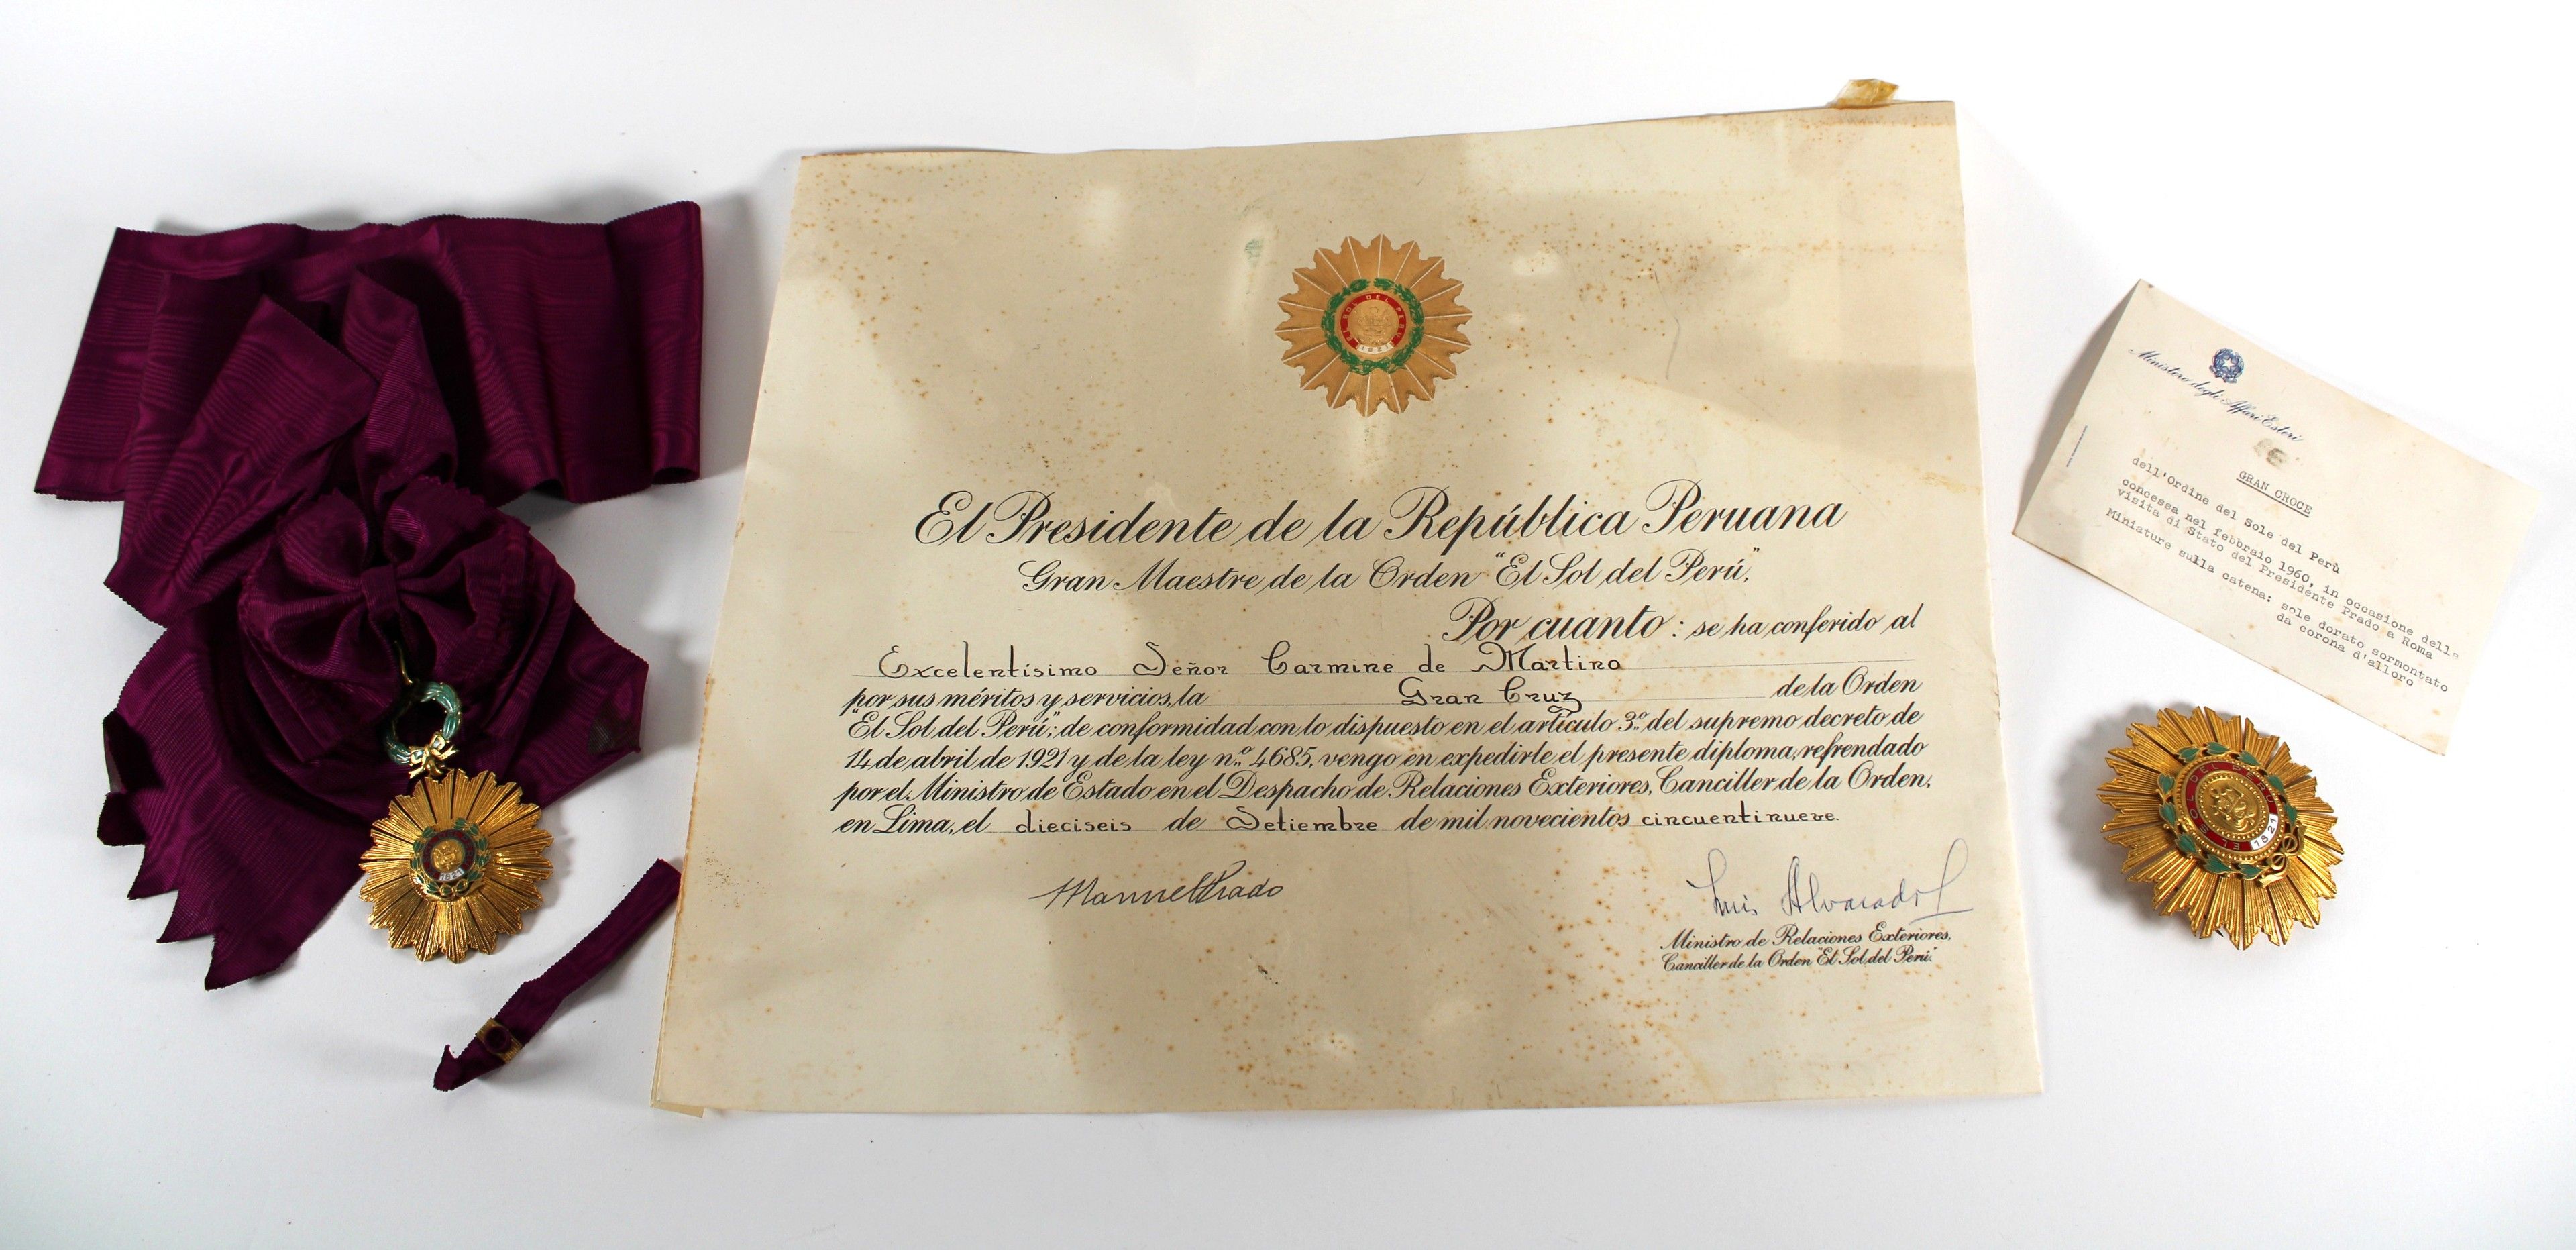 EL SOL DEL PERU
1821
El Presidente de la República Peruana
Gran Maestre de la Orden "El Sol del Perú",
Por cuanto: se ha conferido al
Excelentísimo Señor Carmine de Martino
por sus méritos y servicios, la Gran Cruz de la Orden
"El Sol del Perú"; de conformidad con lo dispuesto en el artículo 3º del supremo decreto de
14 de abril de 1921 y de la ley n.º 4685, vengo en expedirle el presente diploma, refrendado
por el Ministro de Estado en el Despacho de Relaciones Exteriores, Canciller de la Orden,
en Lima, el dieciseis de Setiembre de mil novecientos cincuentinueve.
Manuel Prado
Luis Alvarado
Ministro de Relaciones Exteriores,
Canciller de la Orden "El Sol del Perú."
1821
Ministero degli Affari Esteri
GRAN CROCE
dell'Ordine del Sole del Perù
concessa nel febbraio 1960, in occasione della
visita di Stato del Presidente Prado a Roma
Miniature sulla catena: sole dorato sormontato
da corona d'alloro
EL SOL DEL PERU
1821